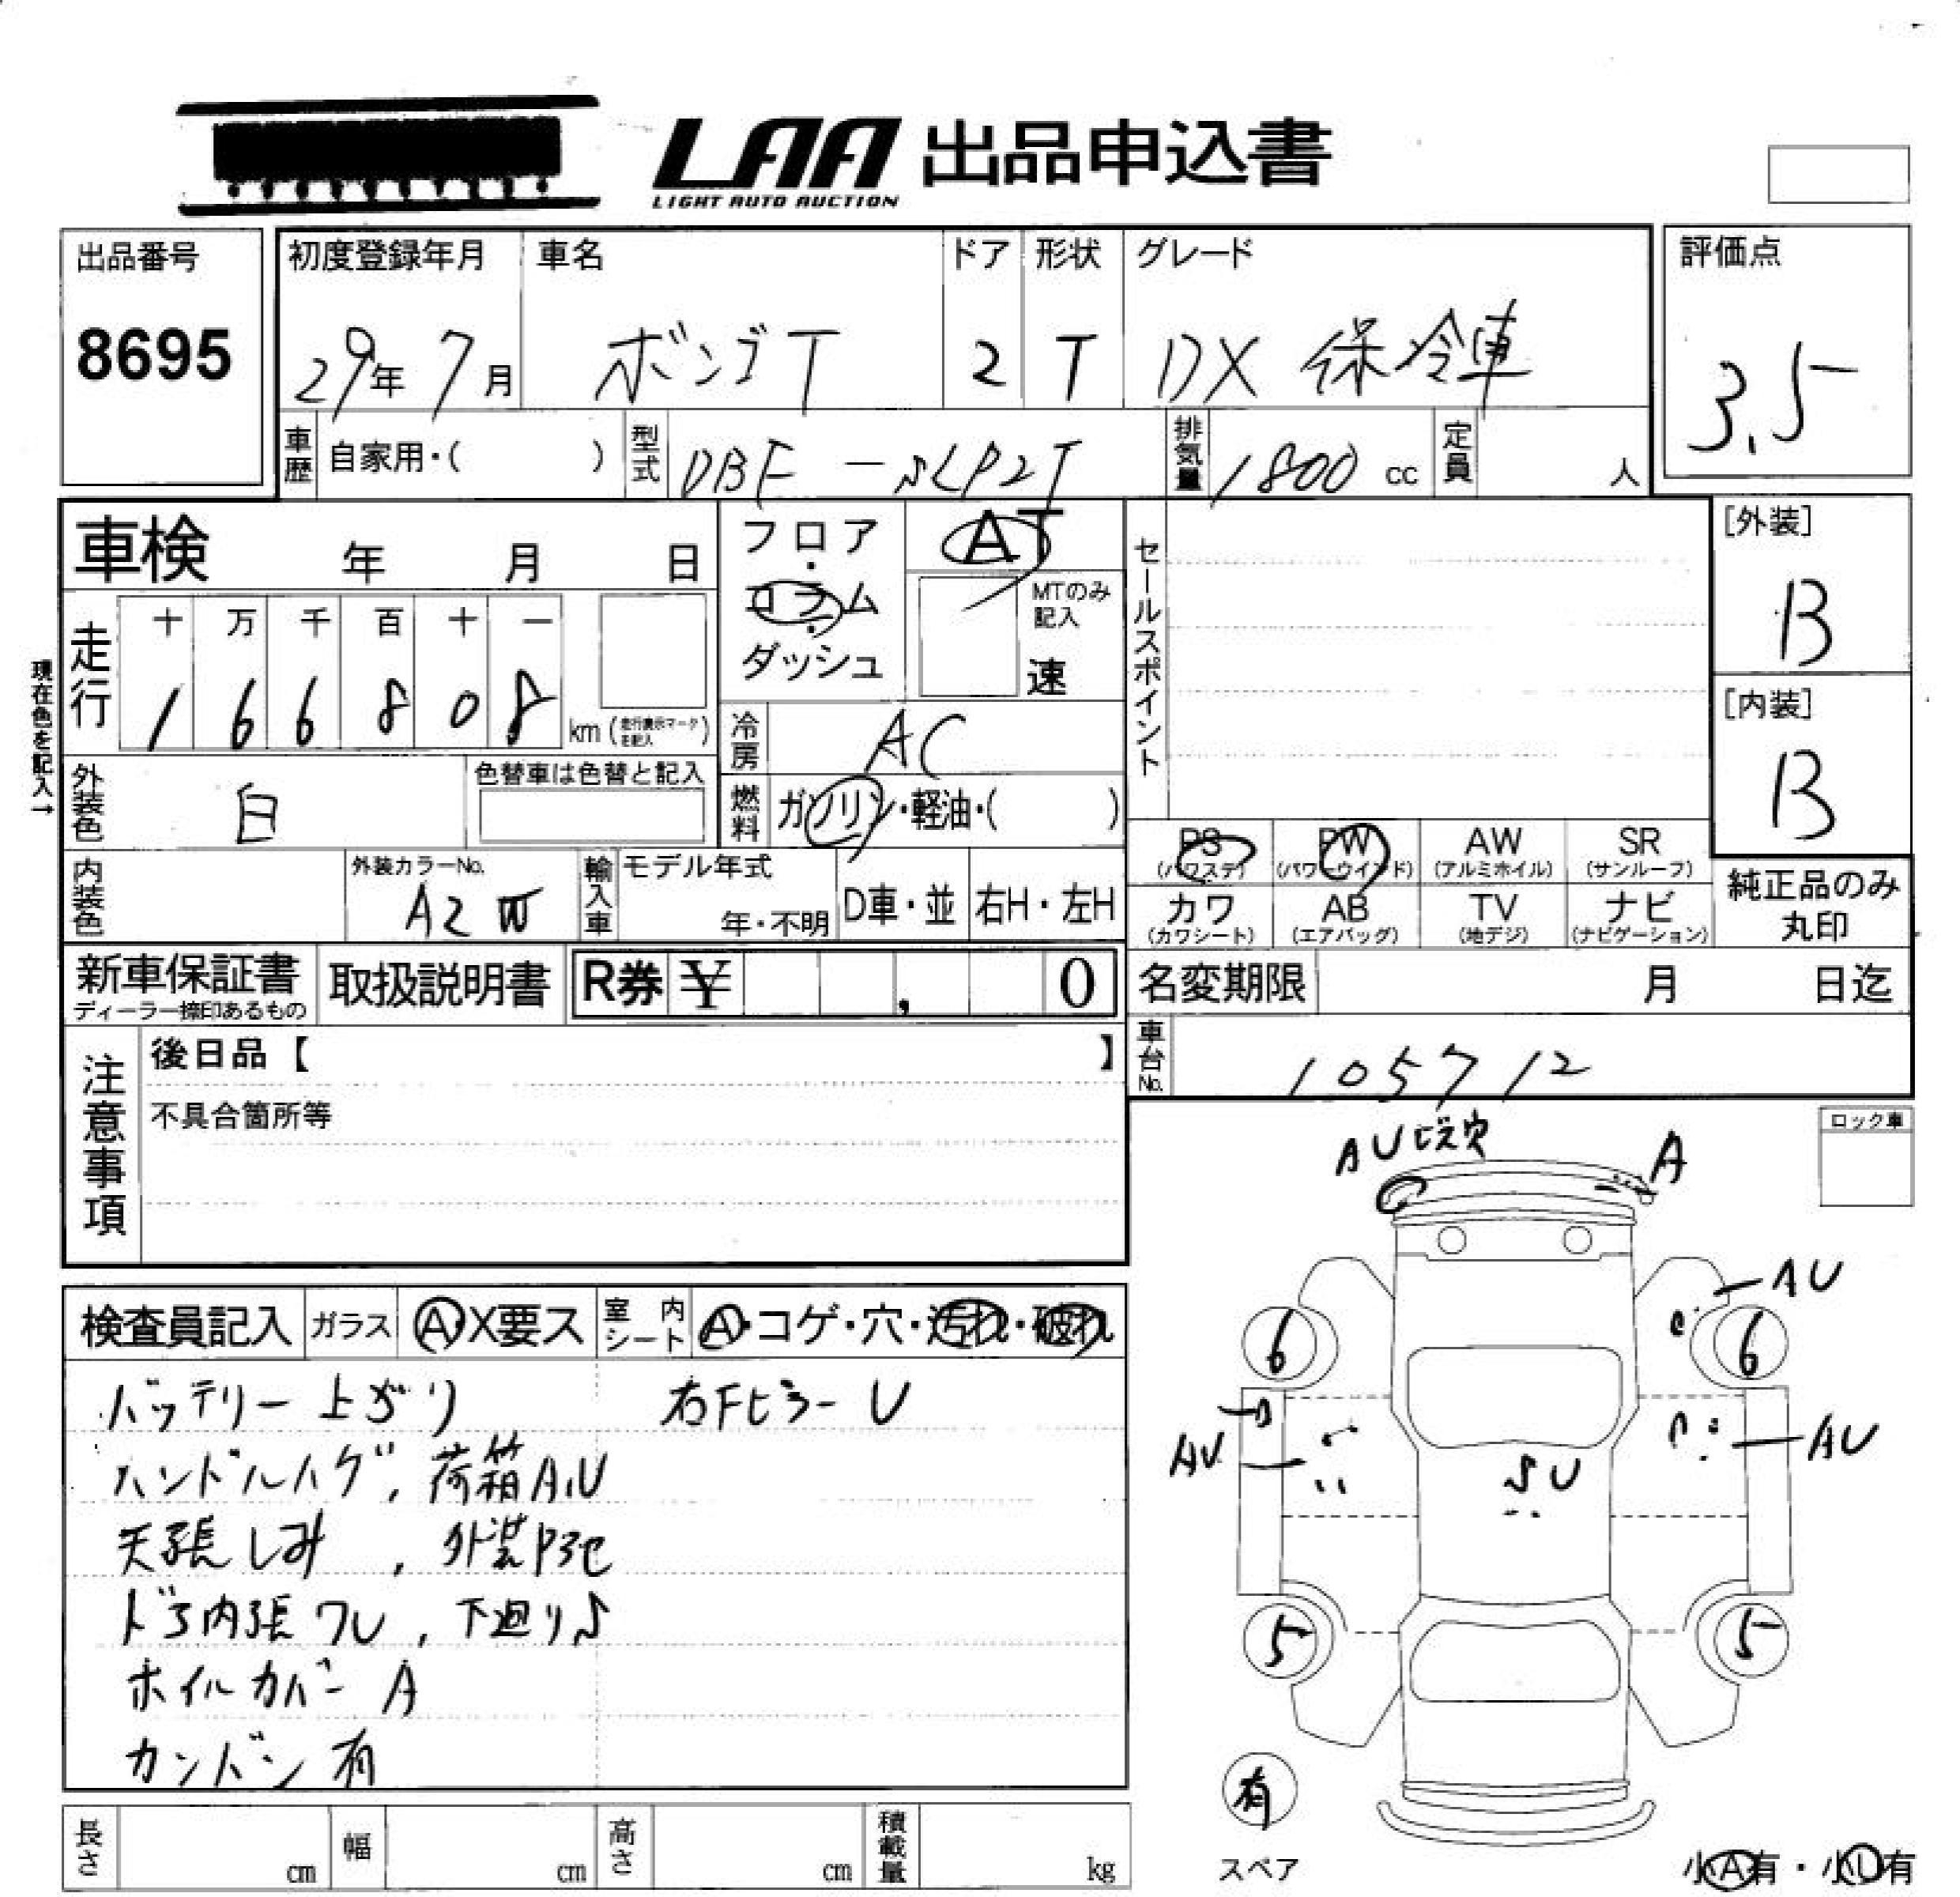 LAA 出品申込書
LIGHT AUTO AUCTION
出品番号
8695
初度登録年月
29年 7月
車名
ボンゴT
ドア
2
形状
T
グレード
DX 保冷庫
評価点
3.5
車歴 自家用・( )
型式 DBF-SLP2T
排気量 1800 cc
定員 人
車検 年 月 日
フロア・コラム・ダッシュ
AT
MTのみ記入
速
セールスポイント
[外装]
B
[内装]
B
現在色を記入→
走行
十 万 千 百 十 一
1 6 6 8 0 8
km (走行表示マークを記入)
冷房 AC
外装色 白
色替車は色替と記入
燃料 ガソリン・軽油・( )
PS (パワステ)
PW (パワーウインド)
AW (アルミホイル)
SR (サンルーフ)
カワ (カワシート)
AB (エアバッグ)
TV (地デジ)
ナビ (ナビゲーション)
純正品のみ丸印
内装色
外装カラーNo.
A2W
輸入車
モデル年式
年・不明
D車・並
右H・左H
新車保証書
ディーラー捺印あるもの
取扱説明書
R券 ¥ , 0
名変期限 月 日迄
車台No. 105712
注意事項
後日品【 】
不具合箇所等
ロック車
検査員記入
ガラス A・X要ス
室内シート A・コゲ・穴・汚れ・破れ
バッテリー上がり
右Fピラー U
ハンドルハゲ, 荷箱A,U
天張しみ , 外装
ドア内張ワレ, 下廻りS
ホイルカバー A
カンバン有
AU ビス穴
A
AU
6
6
AU
AU
SU
5
5
有
スペア
小A有・小U有
長さ cm
幅 cm
高さ cm
積載量 kg